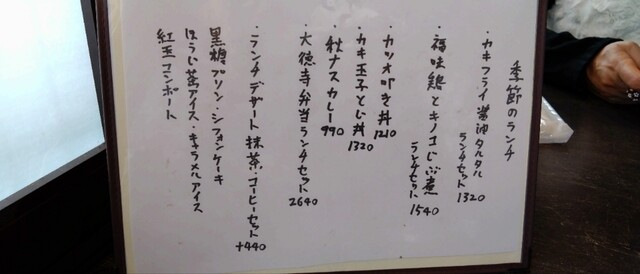 季節のランチ
・カキフライ 醤油タルタル
ランチセット 1320
・福味鶏とキノコじぶ煮
ランチセット 1540
・カツオ叩き丼 1210
・カキ玉子とじ丼 1320
・秋ナスカレー 990
・大徳寺弁当ランチセット 2640
・ランチデザート 抹茶・コーヒーセット +440
黒糖プリン・シフォンケーキ
ほうじ茶アイス・キャラメルアイス
紅玉コンポート